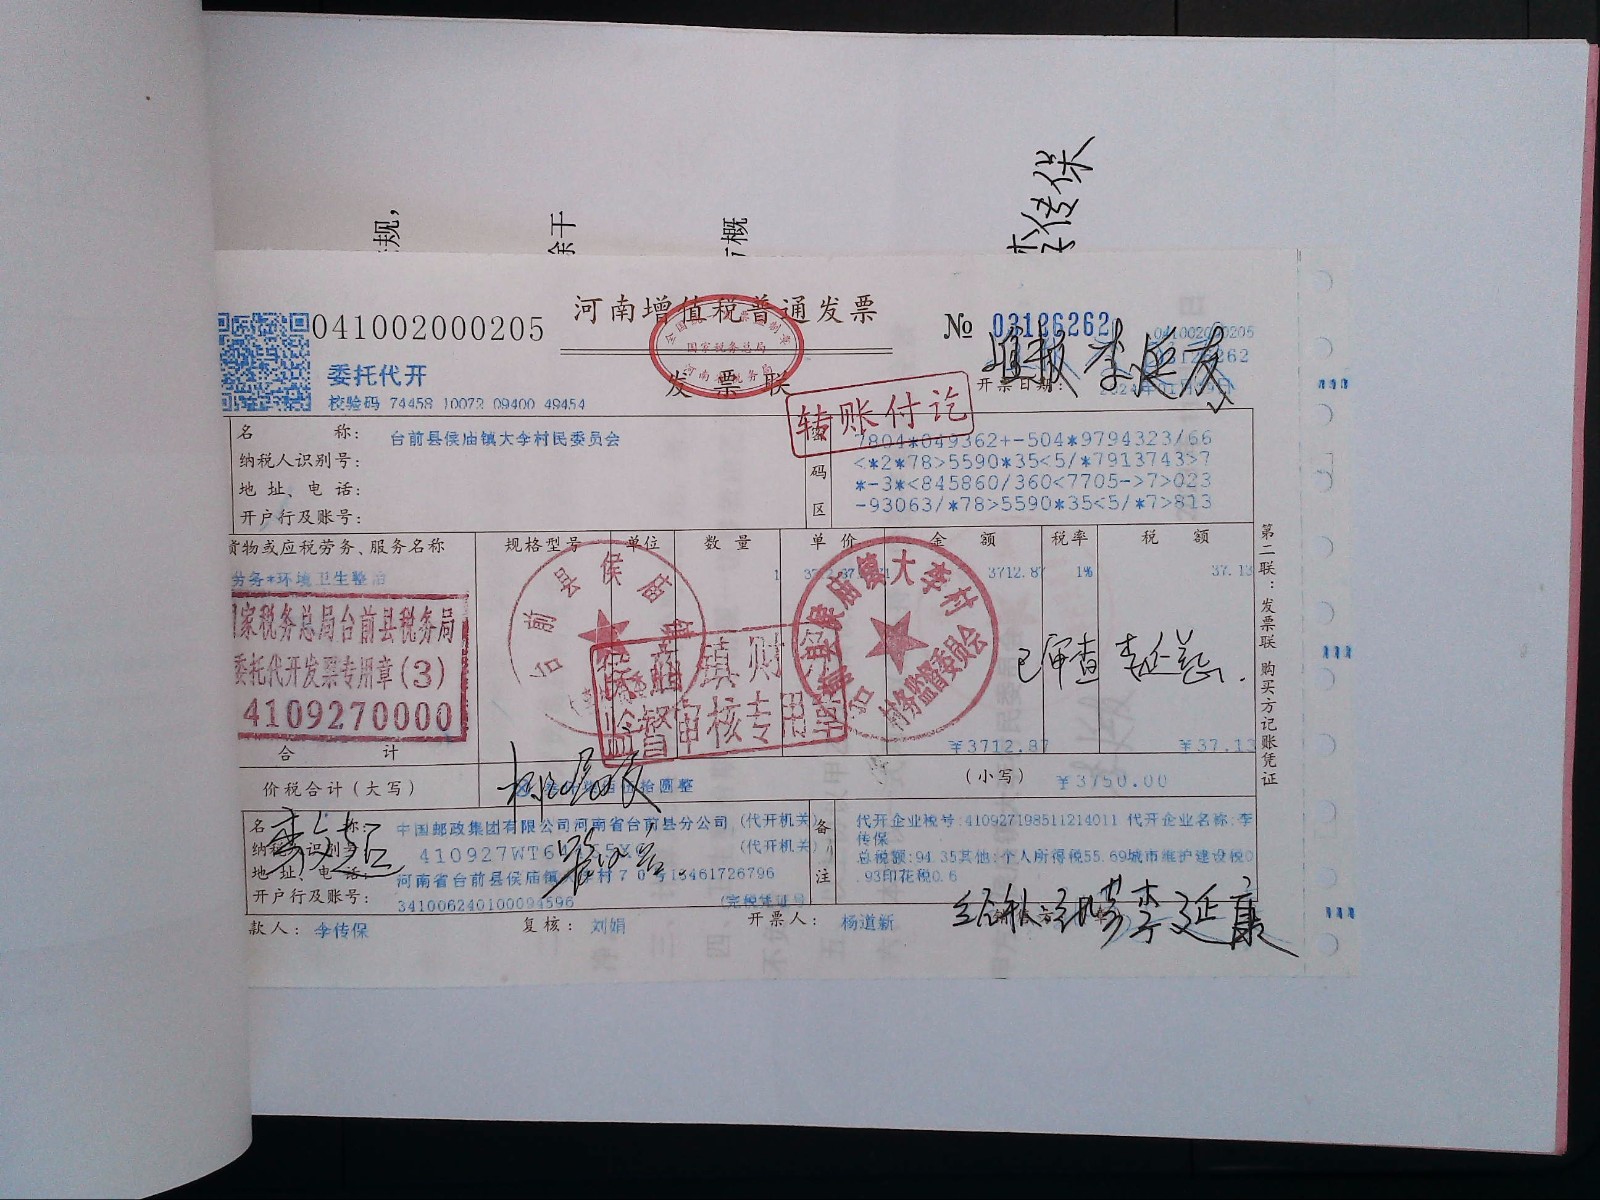 李传保
规，
余干
概
河南增值税普通发票
发票联
全国统一发票监制章
国家税务总局
河南省税务局
041002000205
委托代开
校验码 74458 10072 09400 49454
№ 03126262
041002000205
开票日期：
转账付讫
名称：台前县侯庙镇大李村民委员会
纳税人识别号：
地址、电话：
开户行及账号：
码
区
7804*049362+-504*9794323/66
<*2*78>5590*35<5/*7913743>7
*-3*<845860/360<7705->7>023
-93063/*78>5590*35<5/*7>813
货物或应税劳务、服务名称
规格型号
单位
数量
单价
金额
税率
税额
劳务*环境卫生整治
1
3712.87
1%
37.13
国家税务总局台前县税务局
委托代开发票专用章(3)
4109270000
台前县侯庙镇
侯庙镇财
监督审核专用
台前县侯庙镇大李村
村务监督委员会
已审查 李
合计
¥3712.87
¥37.13
价税合计（大写）
伍拾圆整
（小写）
¥3750.00
名称：中国邮政集团有限公司河南省台前县分公司 （代开机关）
纳税人识别号：410927WT6
（代开机关）
地址、电话：河南省台前县侯庙镇大李村70号15461726796
开户行及账号：341006240100094596
（完税凭证号
备
注
代开企业税号:410927198511214011 代开企业名称:李
传保
总税额:94.35其他:个人所得税55.69城市维护建设税0
.93印花税0.6
款人：李传保
复核：刘娟
开票人：杨道新
李延康
第二联：发票联 购买方记账凭证